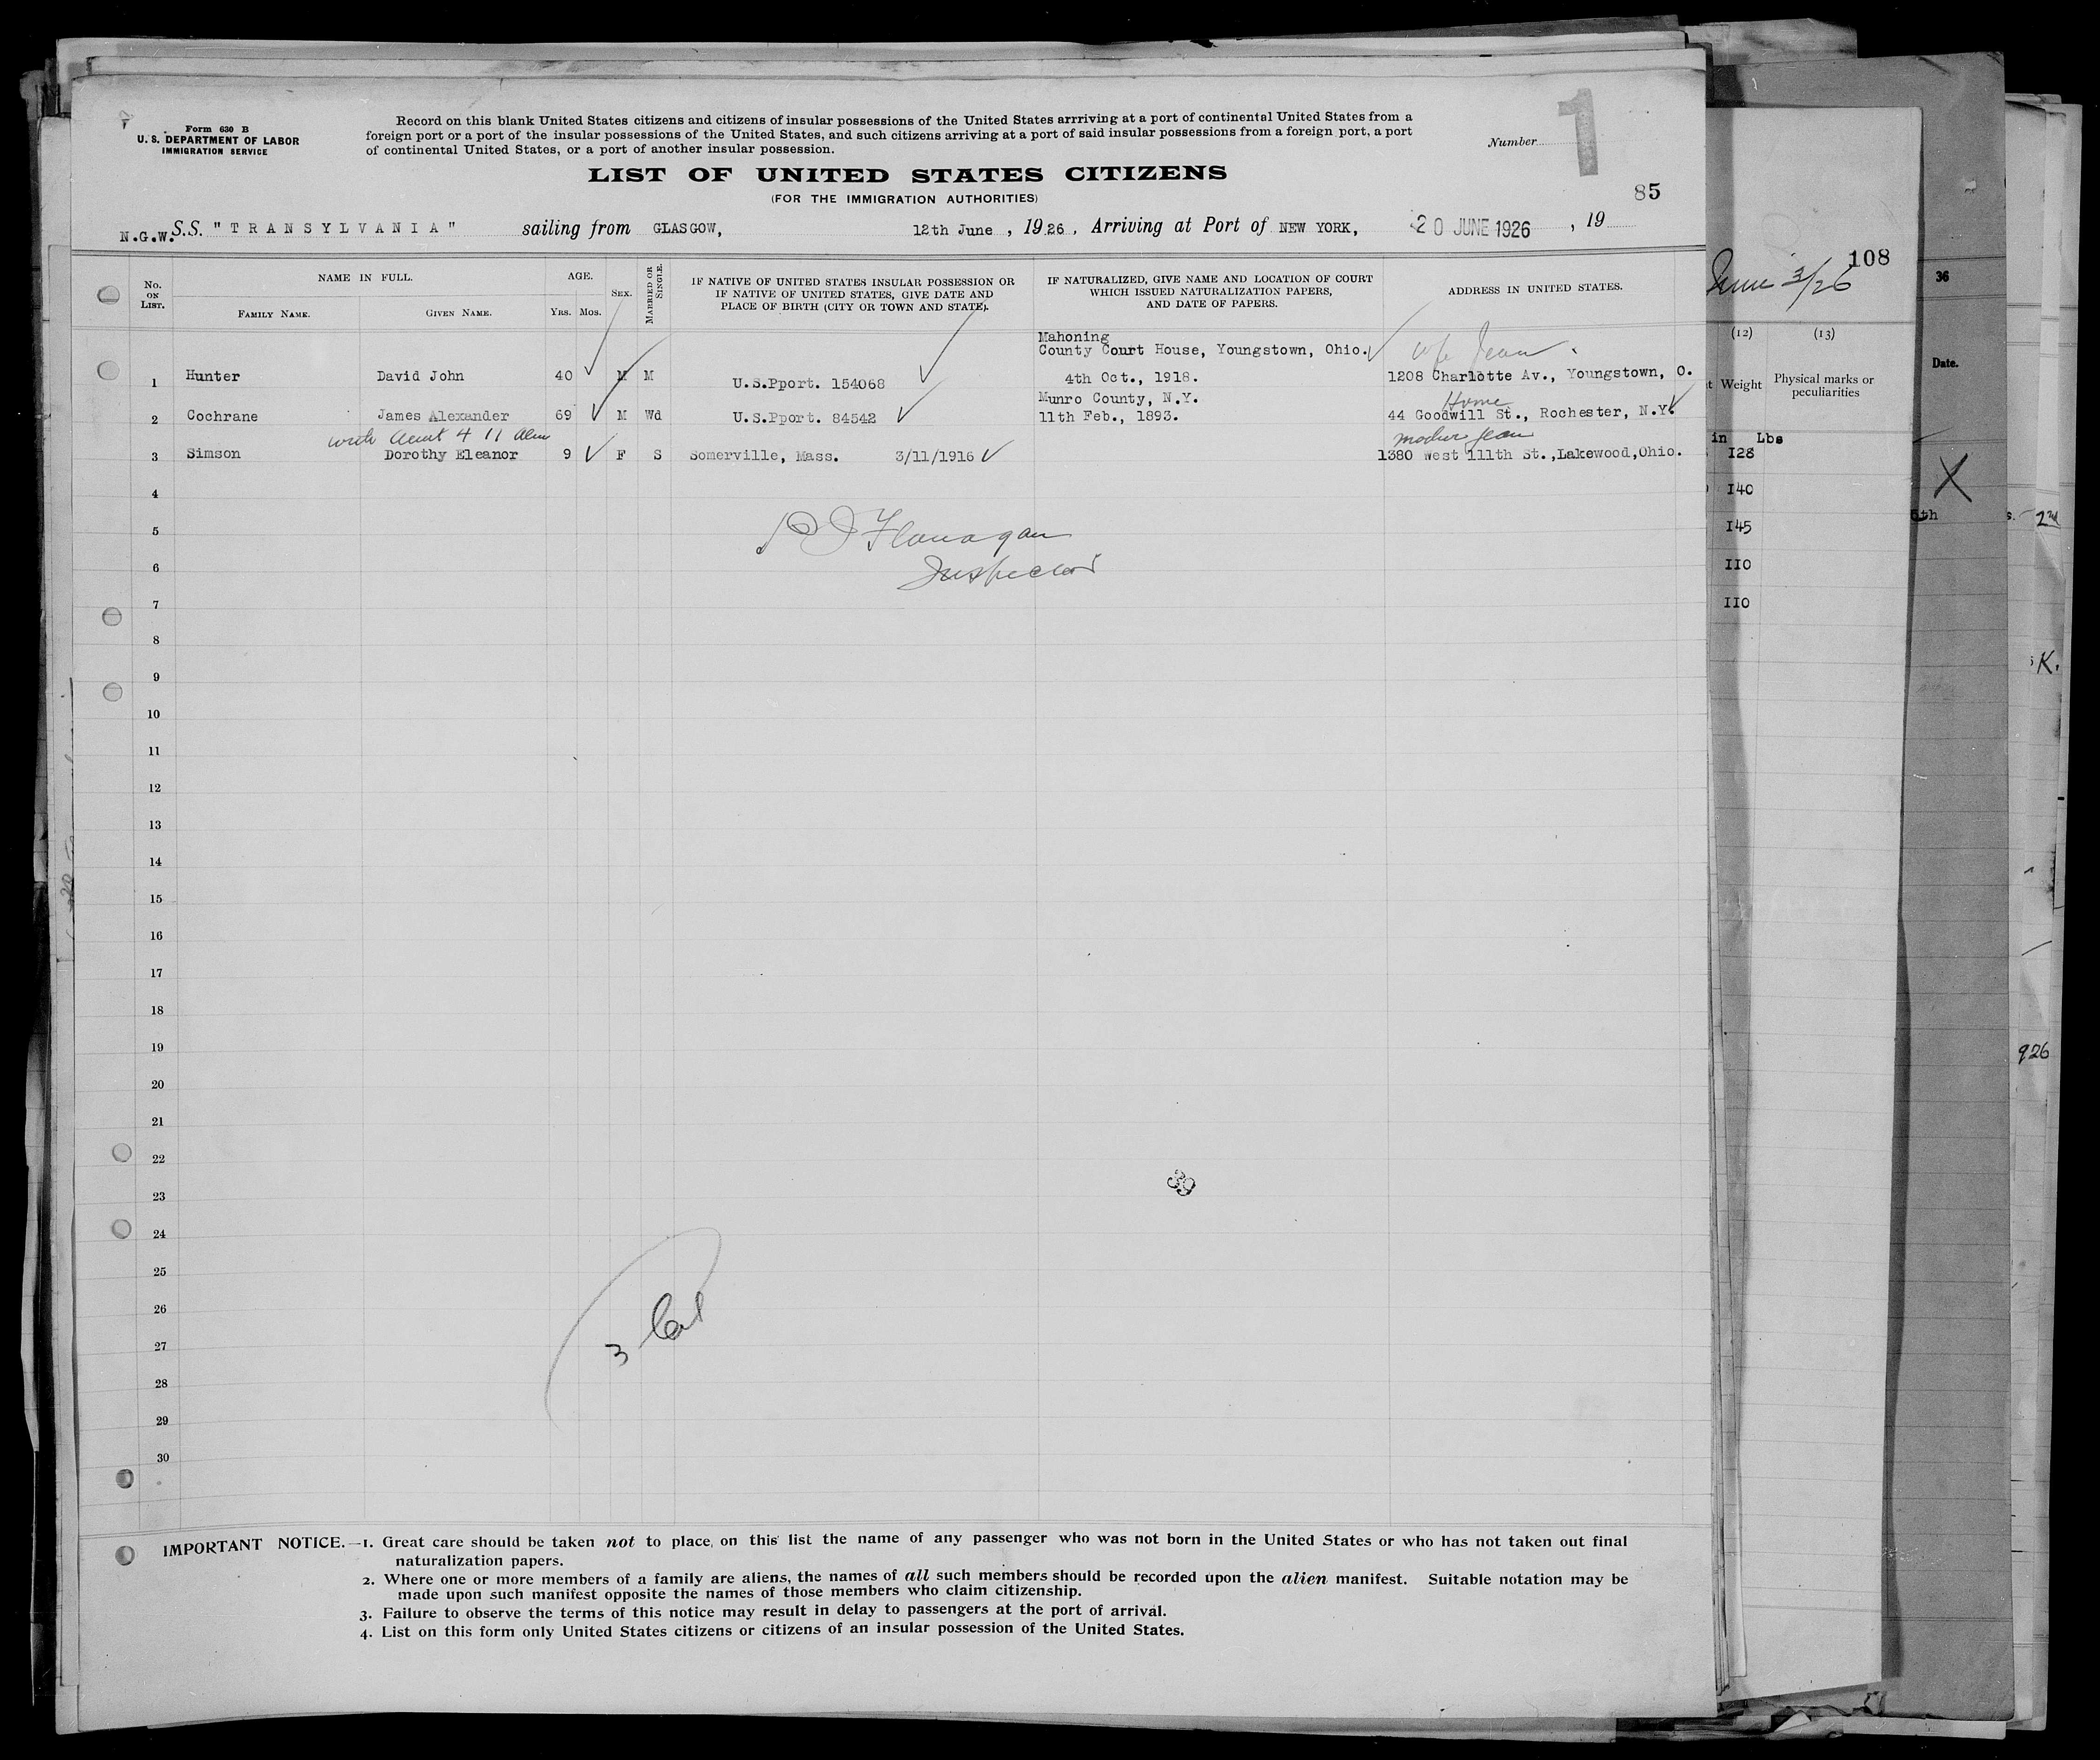 Form 630 B
U. S. DEPARTMENT OF LABOR
IMMIGRATION SERVICE
Record on this blank United States citizens and citizens of insular possessions of the United States arrriving at a port of continental United States from a
foreign port or a port of the insular possessions of the United States, and such citizens arriving at a port of said insular possessions from a foreign port, a port
of continental United States, or a port of another insular possession.
Number
1
LIST OF UNITED STATES CITIZENS
(FOR THE IMMIGRATION AUTHORITIES)
85
N.G.W. S.S. "TRANSYLVANIA" sailing from GLASGOW, 12th June, 1926, Arriving at Port of NEW YORK, 20 JUNE 1926, 19
No. ON LIST.
NAME IN FULL.
FAMILY NAME.
GIVEN NAME.
AGE.
Yrs. Mos.
SEX.
MARRIED OR SINGLE.
IF NATIVE OF UNITED STATES INSULAR POSSESSION OR
IF NATIVE OF UNITED STATES, GIVE DATE AND
PLACE OF BIRTH (CITY OR TOWN AND STATE).
IF NATURALIZED, GIVE NAME AND LOCATION OF COURT
WHICH ISSUED NATURALIZATION PAPERS,
AND DATE OF PAPERS.
ADDRESS IN UNITED STATES.
Mahoning
County Court House, Youngstown, Ohio.
wfe Jean
1 Hunter David John 40 M M U.S.Pport. 154068 4th Oct., 1918. 1208 Charlotte Av., Youngstown, O.
Munro County, N.Y.
Home
2 Cochrane James Alexander 69 M Wd U.S.Pport. 84542 11th Feb., 1893. 44 Goodwill St., Rochester, N.Y.
with Aunt 4 11 Alm
mother Jean
3 Simson Dorothy Eleanor 9 F S Somerville, Mass. 3/11/1916 1380 West 111th St.,Lakewood,Ohio.
4
5
Flanagan
6
Inspector
7
8
9
10
11
12
13
14
15
16
17
18
19
20
21
22
23
39
24
25
26
3
27
28
29
30
IMPORTANT NOTICE.—1. Great care should be taken not to place on this list the name of any passenger who was not born in the United States or who has not taken out final
naturalization papers.
2. Where one or more members of a family are aliens, the names of all such members should be recorded upon the alien manifest. Suitable notation may be
made upon such manifest opposite the names of those members who claim citizenship.
3. Failure to observe the terms of this notice may result in delay to passengers at the port of arrival.
4. List on this form only United States citizens or citizens of an insular possession of the United States.
108
June 3/26
(12) (13)
Weight
Physical marks or
peculiarities
in Lbs
128
140
145
110
110
36
Date.
X
5th
s. 2nd
K.
926